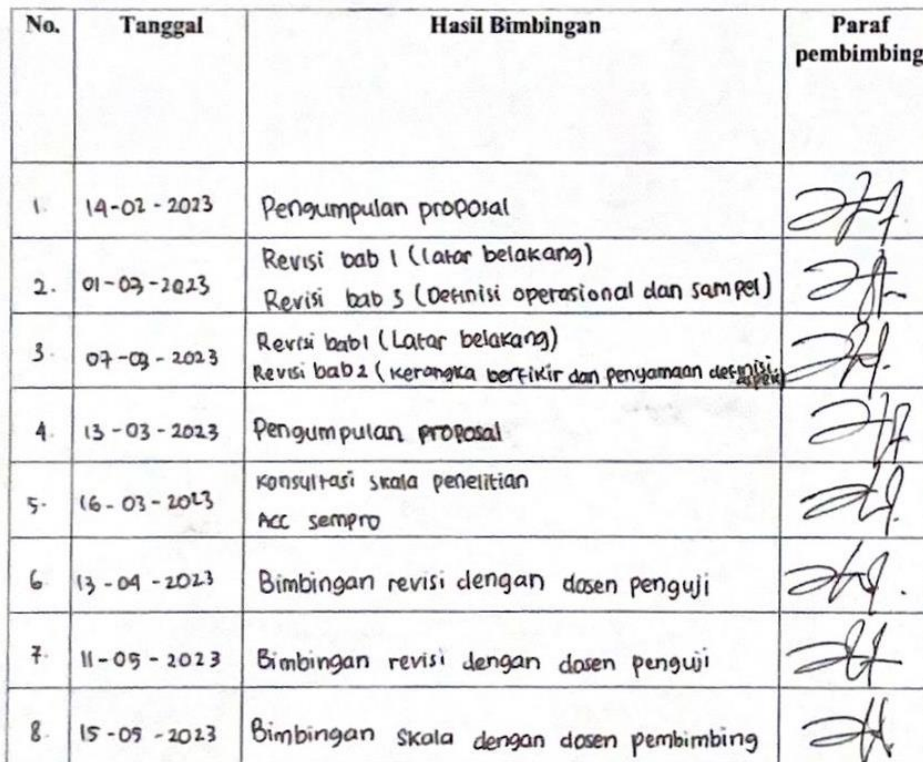 No. Tanggal Hasil Bimbingan Paraf
pembimbing
1. 14-02-2023 Pengumpulan proposal
Revisi bab 1 (latar belakang)
2. 01-03-2023
Revisi bab 3 (Definisi operasional dan sampel)
3. 07-03-2023 Revisi bab1 (Latar belakang)
Revisi bab2 (kerangka berfikir dan penyamaan definisi
aspek)
4. 13-03-2023 Pengumpulan proposal
5. 16-03-2023 Konsultasi skala penelitian
ACC sempro
6 13-04-2023 Bimbingan revisi dengan dosen penguji
7. 11-05-2023 Bimbingan revisi dengan dosen penguji
8. 15-05-2023 Bimbingan skala dengan dosen pembimbing